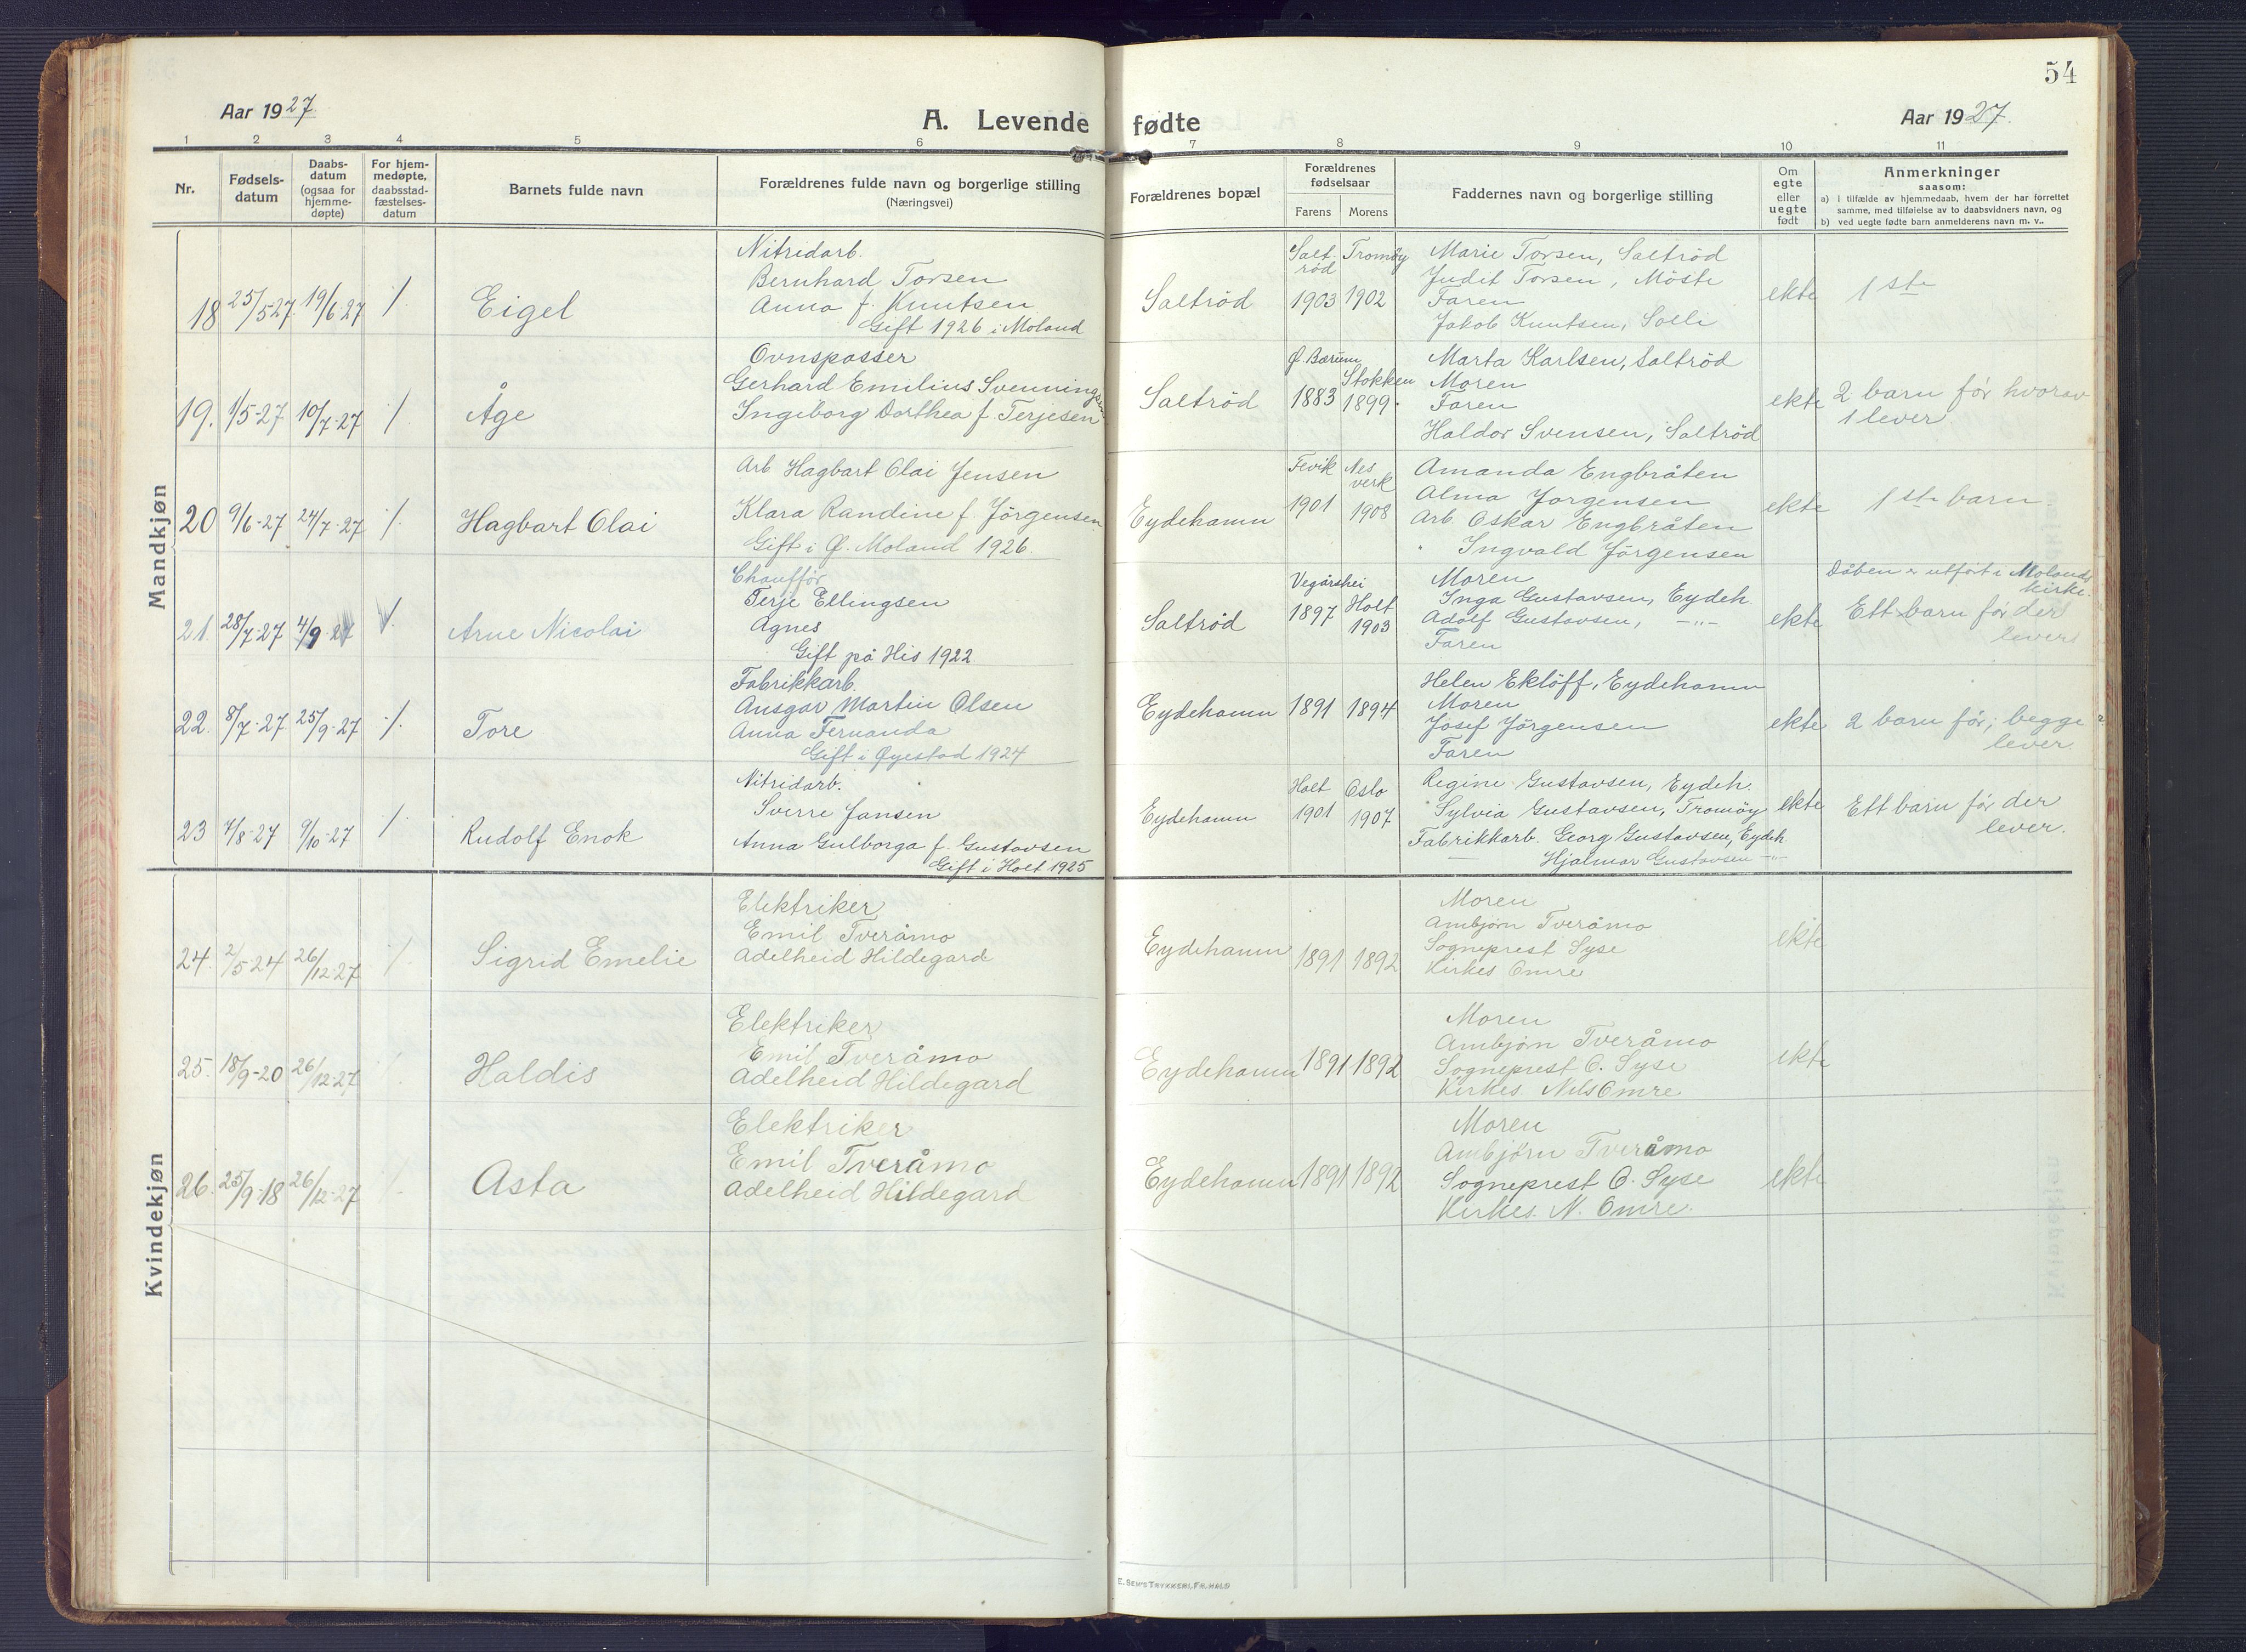 54
Aar 1927
A. Levende fødte
Aar 1927.
1 2 3 4 5 6 7 8 9 10 11
Nr.
Fødsels-
datum
Daabs-
datum
(ogsaa for
hjemme-
døpte)
For hjem-
medøpte,
daabsstad-
fæstelses-
datum
Barnets fulde navn
Forældrenes fulde navn og borgerlige stilling
(Næringsvei)
Forældrenes bopæl
Forældrenes
fødselsaar
Farens Morens
Faddernes navn og borgerlige stilling
Om
egte
eller
uegte
født
Anmerkninger
saasom:
a) i tilfælde av hjemmedaab, hvem der har forrettet
samme, med tilføielse av to daabsvidners navn, og
b) ved uegte fødte barn anmelderens navn m. v..
Mandkjøn
18 25/5-27 19/6-27 ./.
Eigel
Nitridarb.
Bernhard Torsen
Anna f. Knutsen
Gift 1926 i Moland
Saltröd
Salt-
röd
1903
Tromöy
1902
Marie Torsen, Saltröd
Judit Torsen, Möste
Faren
Jakob Knutsen, Solli
ekte
1ste
19. 1/5-27 10/7-27 ./.
Åge
Ovnspasser
Gerhard Emilius Svenningsen
Ingeborg Dorthea f. Terjesen
Saltröd
Ø. Bærum
1883
Stokken
1899.
Marta Karlsen, Saltröd
Moren
Faren
Haldor Svensen, Saltröd
ekte
2 barn før hvorav
1 lever
20 9/6-27 24/7-27 ./.
Hagbart Olai
Arb Hagbart Olai Jensen
Klara Randine f. Jörgensen
Gift i Ø. Moland 1926.
Eydehamn
Fevik
1901
Nes
verk
1908
Amanda Engbråten
Alma Jorgensen
Arb. Oskar Engbråten
" Ingvald Jörgensen
ekte
1ste barn
21. 28/7-27 4/9 27 ./.
Arne Nicolai
Chauffør
Terje Ellingsen
Agnes
Gift på His 1922
Saltröd
Vegårshei
1897
Holt
1903
Moren
Inga Gustavsen, Eydeh.
Adolf Gustavsen, -"-
Faren
ekte
Dåben er utfört i Molands
kirke.
Ett barn før der
lever
22. 8/7-27 25/9-27 ./.
Tore
Fabrikkarb.
Ansgar Martin Olsen
Anna Fernanda
Gift i Øyestad 1924
Eydehamn 1891 1894
Helen Eklöff, Eydehamn
Moren
Josef Jörgensen
Faren
ekte
2 barn før; begge
lever
23 7/8-27 9/10-27 ./.
Rudolf Enok
Nitridarb.
Sverre Jansen
Anna Gulborga f. Gustavsen
Gift i Holt 1925
Eydehamn
Holt
1901
Oslo
1907
Regine Gustavsen, Eydeh.
Sylvia Gustavsen, Tromöy
Fabrikkarb. Georg Gustavsen, Eydeh.
— Hjalmar Gustavsen -"-
ekte
Ett barn før der
lever.
Kvindekjøn
24. 2/5-24 26/12-27 ./.
Sigrid Emelie
Elektriker
Emil Tveråmo
Adelheid Hildegard
Eydehamn 1891 1892
Moren
Ambjørn Tveråmo
Sogneprest Syse
Kirkes Omre
ekte
25. 18/9-20 26/12-27 ./.
Haldis
Elektriker
Emil Tveråmo
Adelheid Hildegard
Eydehamn 1891 1892
Moren
Ambjørn Tveråmo
Sogneprest O. Syse
Kirkes Nils Omre
ekte
26. 25/9-18 26/12-27 ./.
Asta
Elektriker
Emil Tveråmo
Adelheid Hildegard
Eydehamn 1891 1892
Moren
Ambjørn Tveråmo
Sogneprest O. Syse
Kirkes. N. Omre.
ekte
E. SEM'S TRYKKERI, FR.HALD